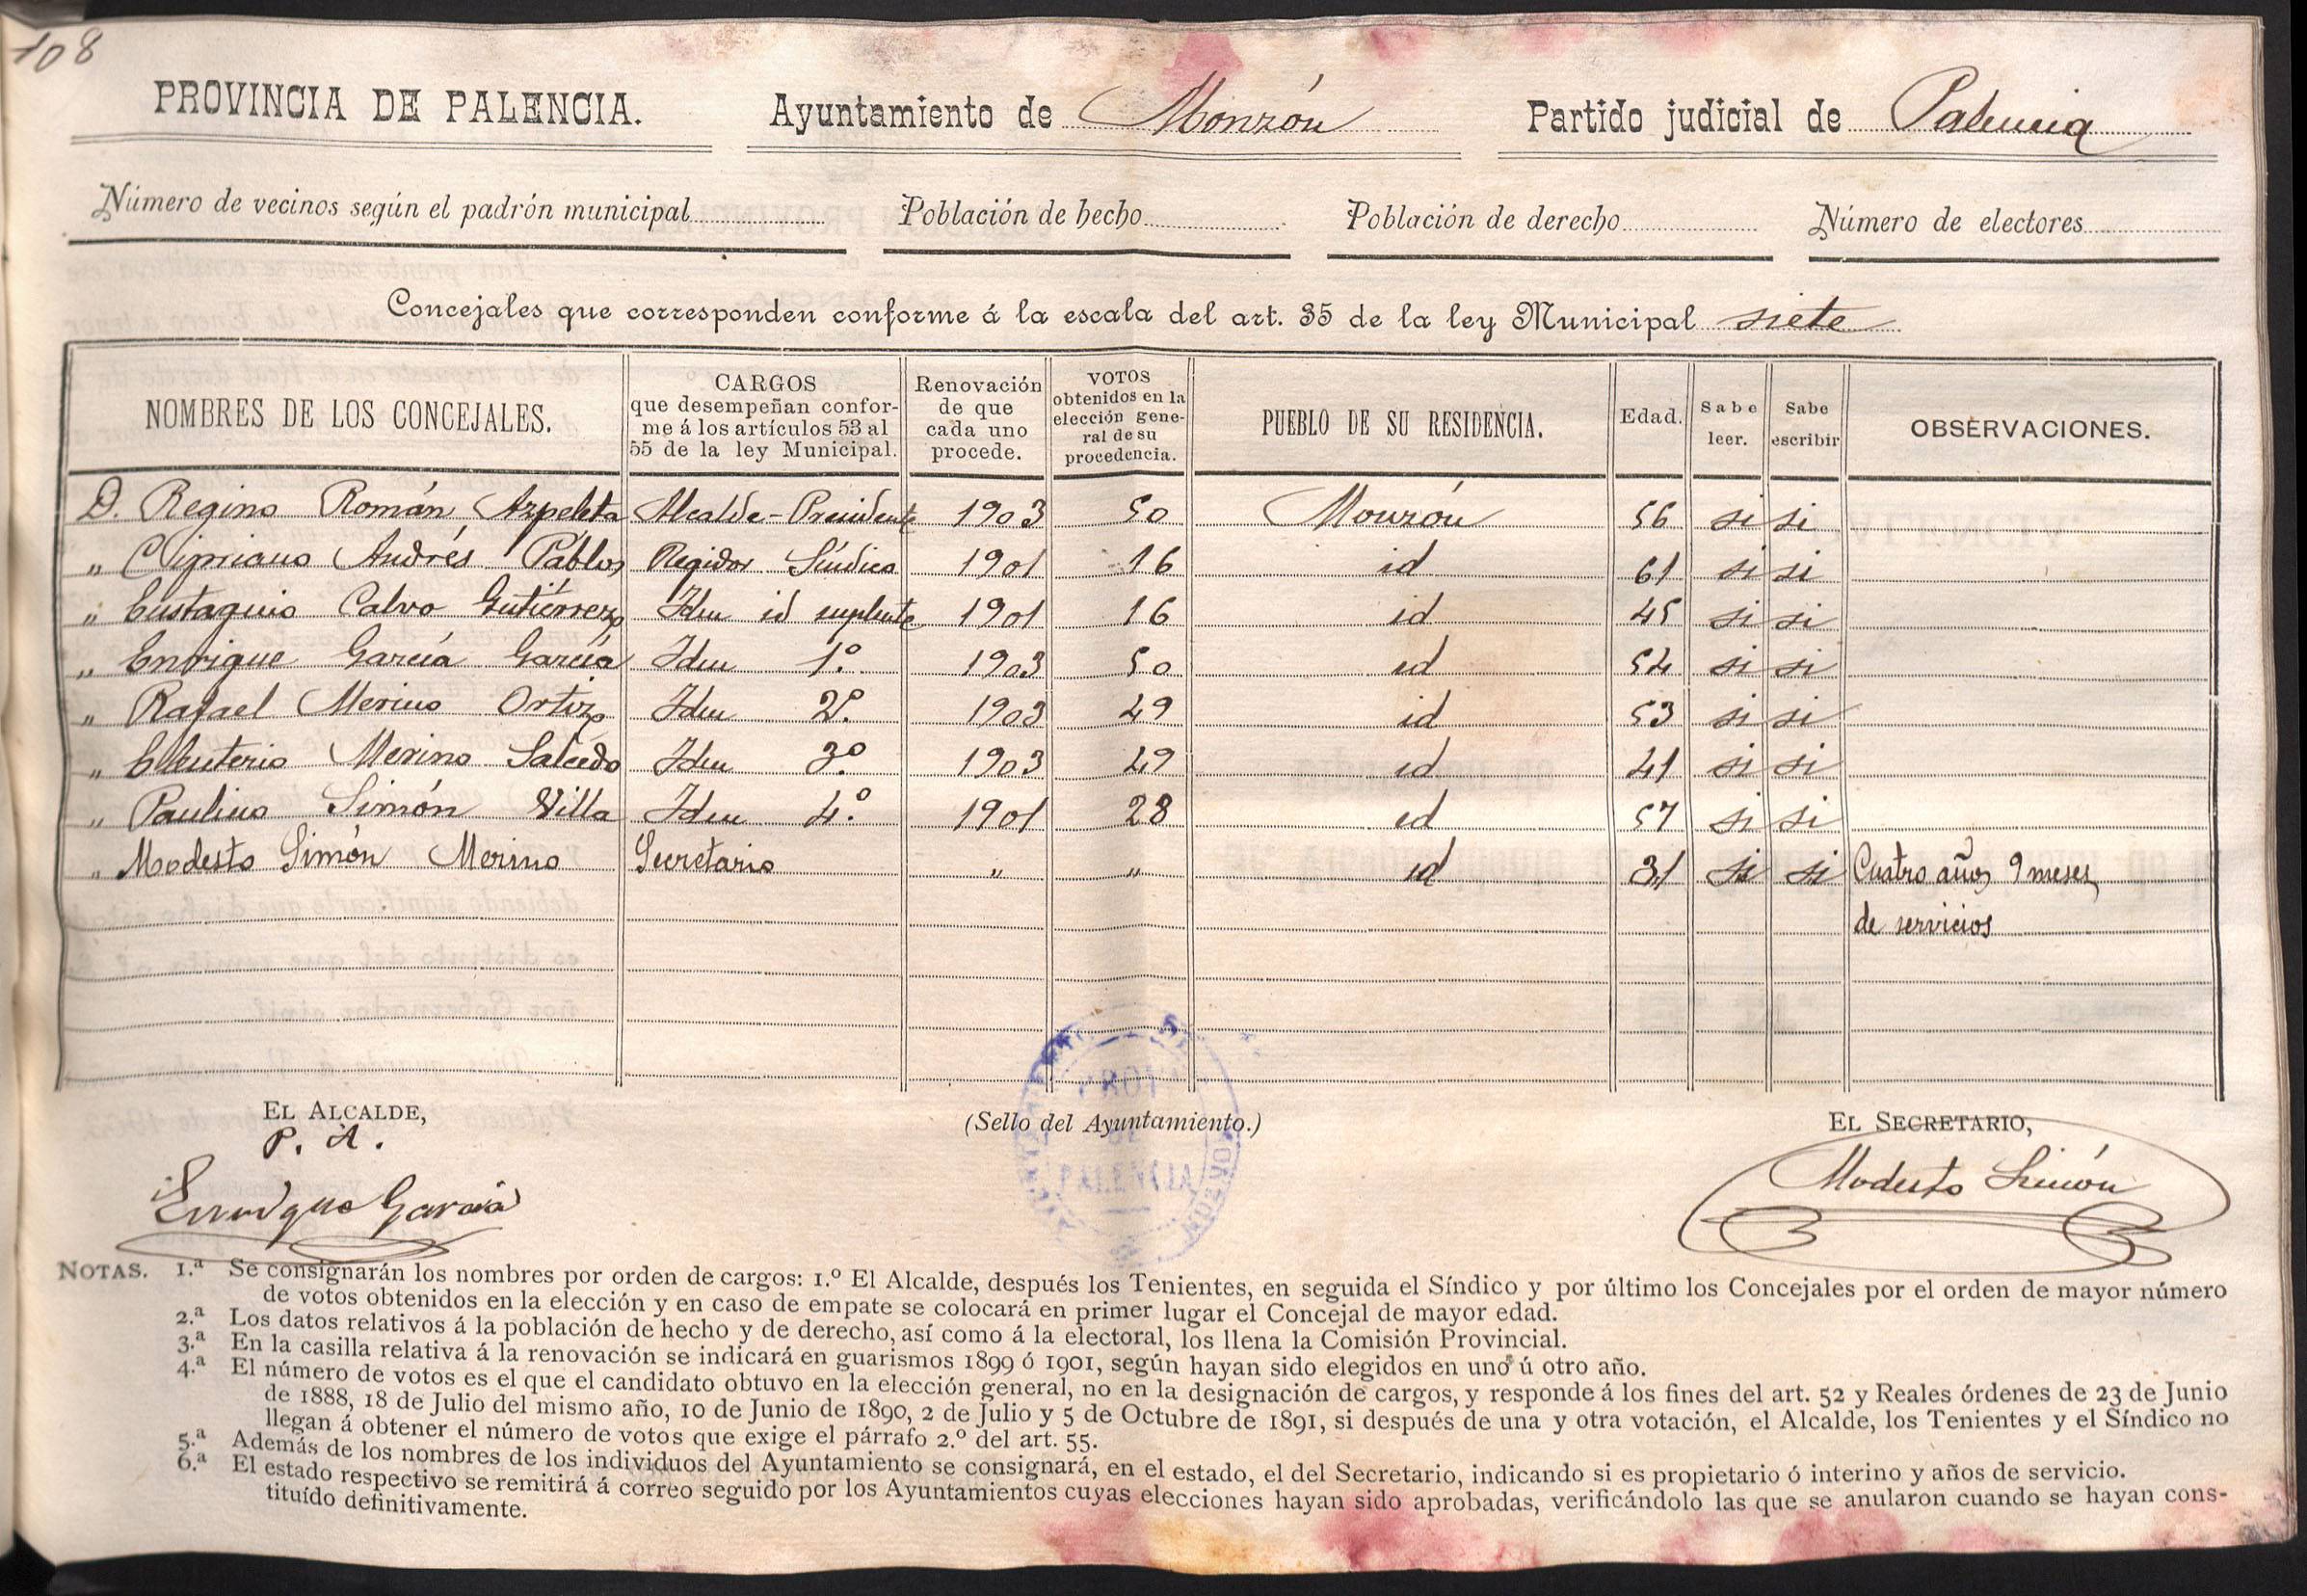 108
PROVINCIA DE PALENCIA. Ayuntamiento de Monzón Partido judicial de Palencia
Número de vecinos según el padrón municipal Población de hecho Población de derecho Número de electores
Concejales que corresponden conforme á la escala del art. 35 de la ley Municipal siete
NOMBRES DE LOS CONCEJALES. CARGOS que desempeñan conforme á los artículos 53 al 55 de la ley Municipal. Renovación de que cada uno procede. VOTOS obtenidos en la elección general de su procedencia. PUEBLO DE SU RESIDENCIA. Edad. Sabe leer. Sabe escribir OBSERVACIONES.
D. Regino Román Azpeleta Alcalde-Presidente 1903 50 Monzón 56 si si
„ Cipriano Andrés Pablos Regidor Síndico 1901 16 id 61 si si
„ Eustaquio Calvo Gutiérrez Idem id suplente 1901 16 id 45 si si
„ Enrique García García Idem 1.º 1903 50 id 54 si si
„ Rafael Merino Ortiz Idem 2.º 1903 49 id 53 si si
„ Eleuterio Merino Salcedo Idem 3.º 1903 49 id 41 si si
„ Paulino Simón Villa Idem 4.º 1901 28 id 57 si si
„ Modesto Simón Merino Secretario „ „ id 31 si si Cuatro años 9 meses
de servicios
EL ALCALDE, (Sello del Ayuntamiento.) EL SECRETARIO,
P. A.
Enrique García Modesto Simón
PROV.ª
DE
PALENCIA
NOTAS. 1.ª Se consignarán los nombres por orden de cargos: 1.º El Alcalde, después los Tenientes, en seguida el Síndico y por último los Concejales por el orden de mayor número
de votos obtenidos en la elección y en caso de empate se colocará en primer lugar el Concejal de mayor edad.
2.ª Los datos relativos á la población de hecho y de derecho, así como á la electoral, los llena la Comisión Provincial.
3.ª En la casilla relativa á la renovación se indicará en guarismos 1899 ó 1901, según hayan sido elegidos en uno ú otro año.
4.ª El número de votos es el que el candidato obtuvo en la elección general, no en la designación de cargos, y responde á los fines del art. 52 y Reales órdenes de 23 de Junio
de 1888, 18 de Julio del mismo año, 10 de Junio de 1890, 2 de Julio y 5 de Octubre de 1891, si después de una y otra votación, el Alcalde, los Tenientes y el Síndico no
llegan á obtener el número de votos que exige el párrafo 2.º del art. 55.
5.ª Además de los nombres de los individuos del Ayuntamiento se consignará, en el estado, el del Secretario, indicando si es propietario ó interino y años de servicio.
6.ª El estado respectivo se remitirá á correo seguido por los Ayuntamientos cuyas elecciones hayan sido aprobadas, verificándolo las que se anularon cuando se hayan cons-
tituído definitivamente.